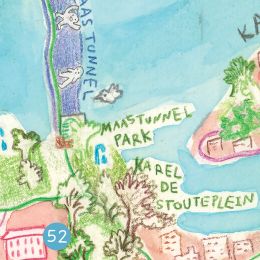 MAASTUNNEL
KA
MAASTUNNEL
PARK
KAREL
DE
STOUTEPLEIN
52